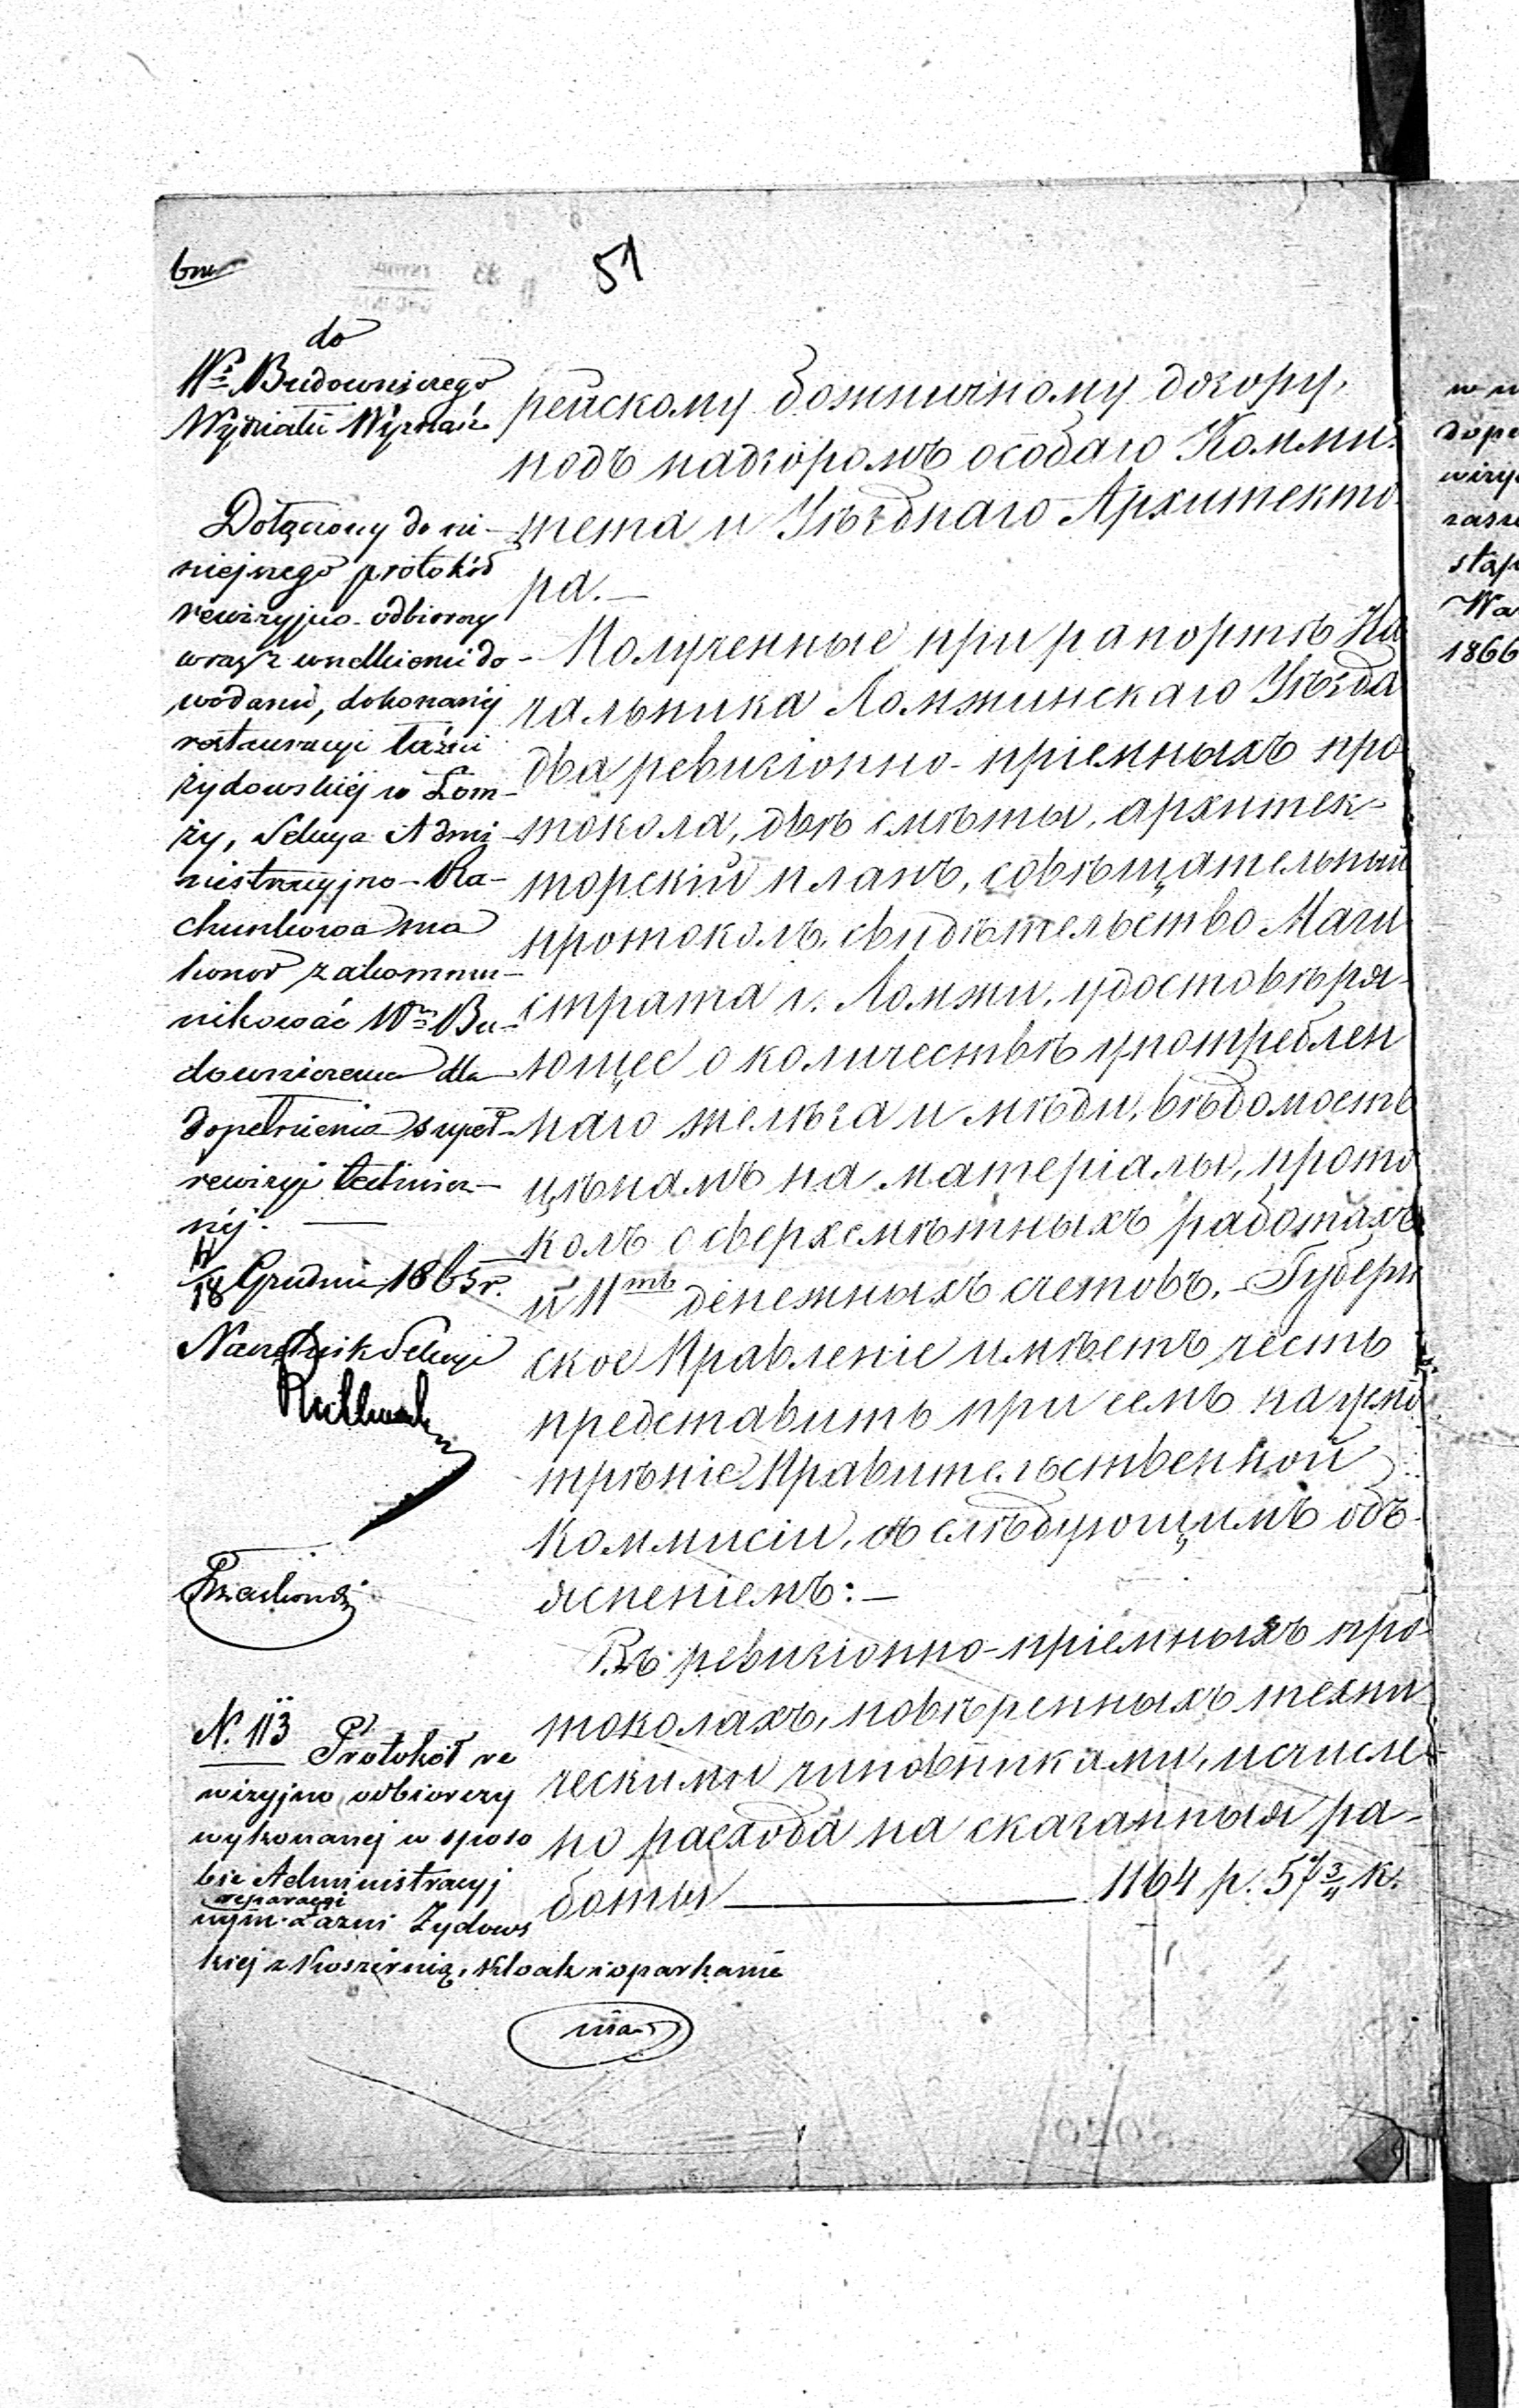 51
do
Wo Budowniczego
Wydziału Wyznań
Dołączony do ni-
niejszego protokół
rewizyjno-odbiorczy
wraz z wszelkiemi do-
wodami, dokonanej
restauracyi łaźni
żydowskiej w Łom-
ży, Sekcya Admi-
nistracyjno-Ra-
chunkowa ma
honor zakommu-
nikować Wmu Bu-
downiczemu dla
dopełnienia super
rewizyi technicz-
nej. —
/18 Grudnia 1865 r.
Naczelnik Sekcyi
N. 113 Protokół re
wizyjno odbiorczy
wykonanej w sposo
bie Administracyj
reparacyi
nym Łaźni Żydows
kiej z Koszernią, Kloak i oparkanie
рейскому божничному дозору,
подъ надзоромъ особаго Комми-
тета и Уѣзднаго Архитекто-
ра.—
Полученные при рапортѣ На
чальника Ломжинскаго Уѣзда
два ревизіонно-пріемныхъ про
токола, двѣ смѣты, архитек-
торскій планъ, совѣщательный
протоколъ, свидѣтельство Маги
страта г. Ломжи, удостовѣря-
ющее о количествѣ употреблен
наго желѣза и мѣди, вѣдомость
цѣнамъ на матеріалы, прото
колъ о сверхсмѣтныхъ работахъ
и 11ть денежныхъ счетовъ,- Губерн
ское Правленіе имѣетъ честь
представить при семъ на усмо
трѣніе Правительственной
Коммисіи, съ слѣдующимъ объ-
ясненіемъ:—
Въ ревизіонно-пріемныхъ про-
токолахъ, повѣренныхъ техни
ческими чиновниками, исчисле-
но расхода на сказанныя ра-
боты — 1164 р. 57 3/4 к.
1866